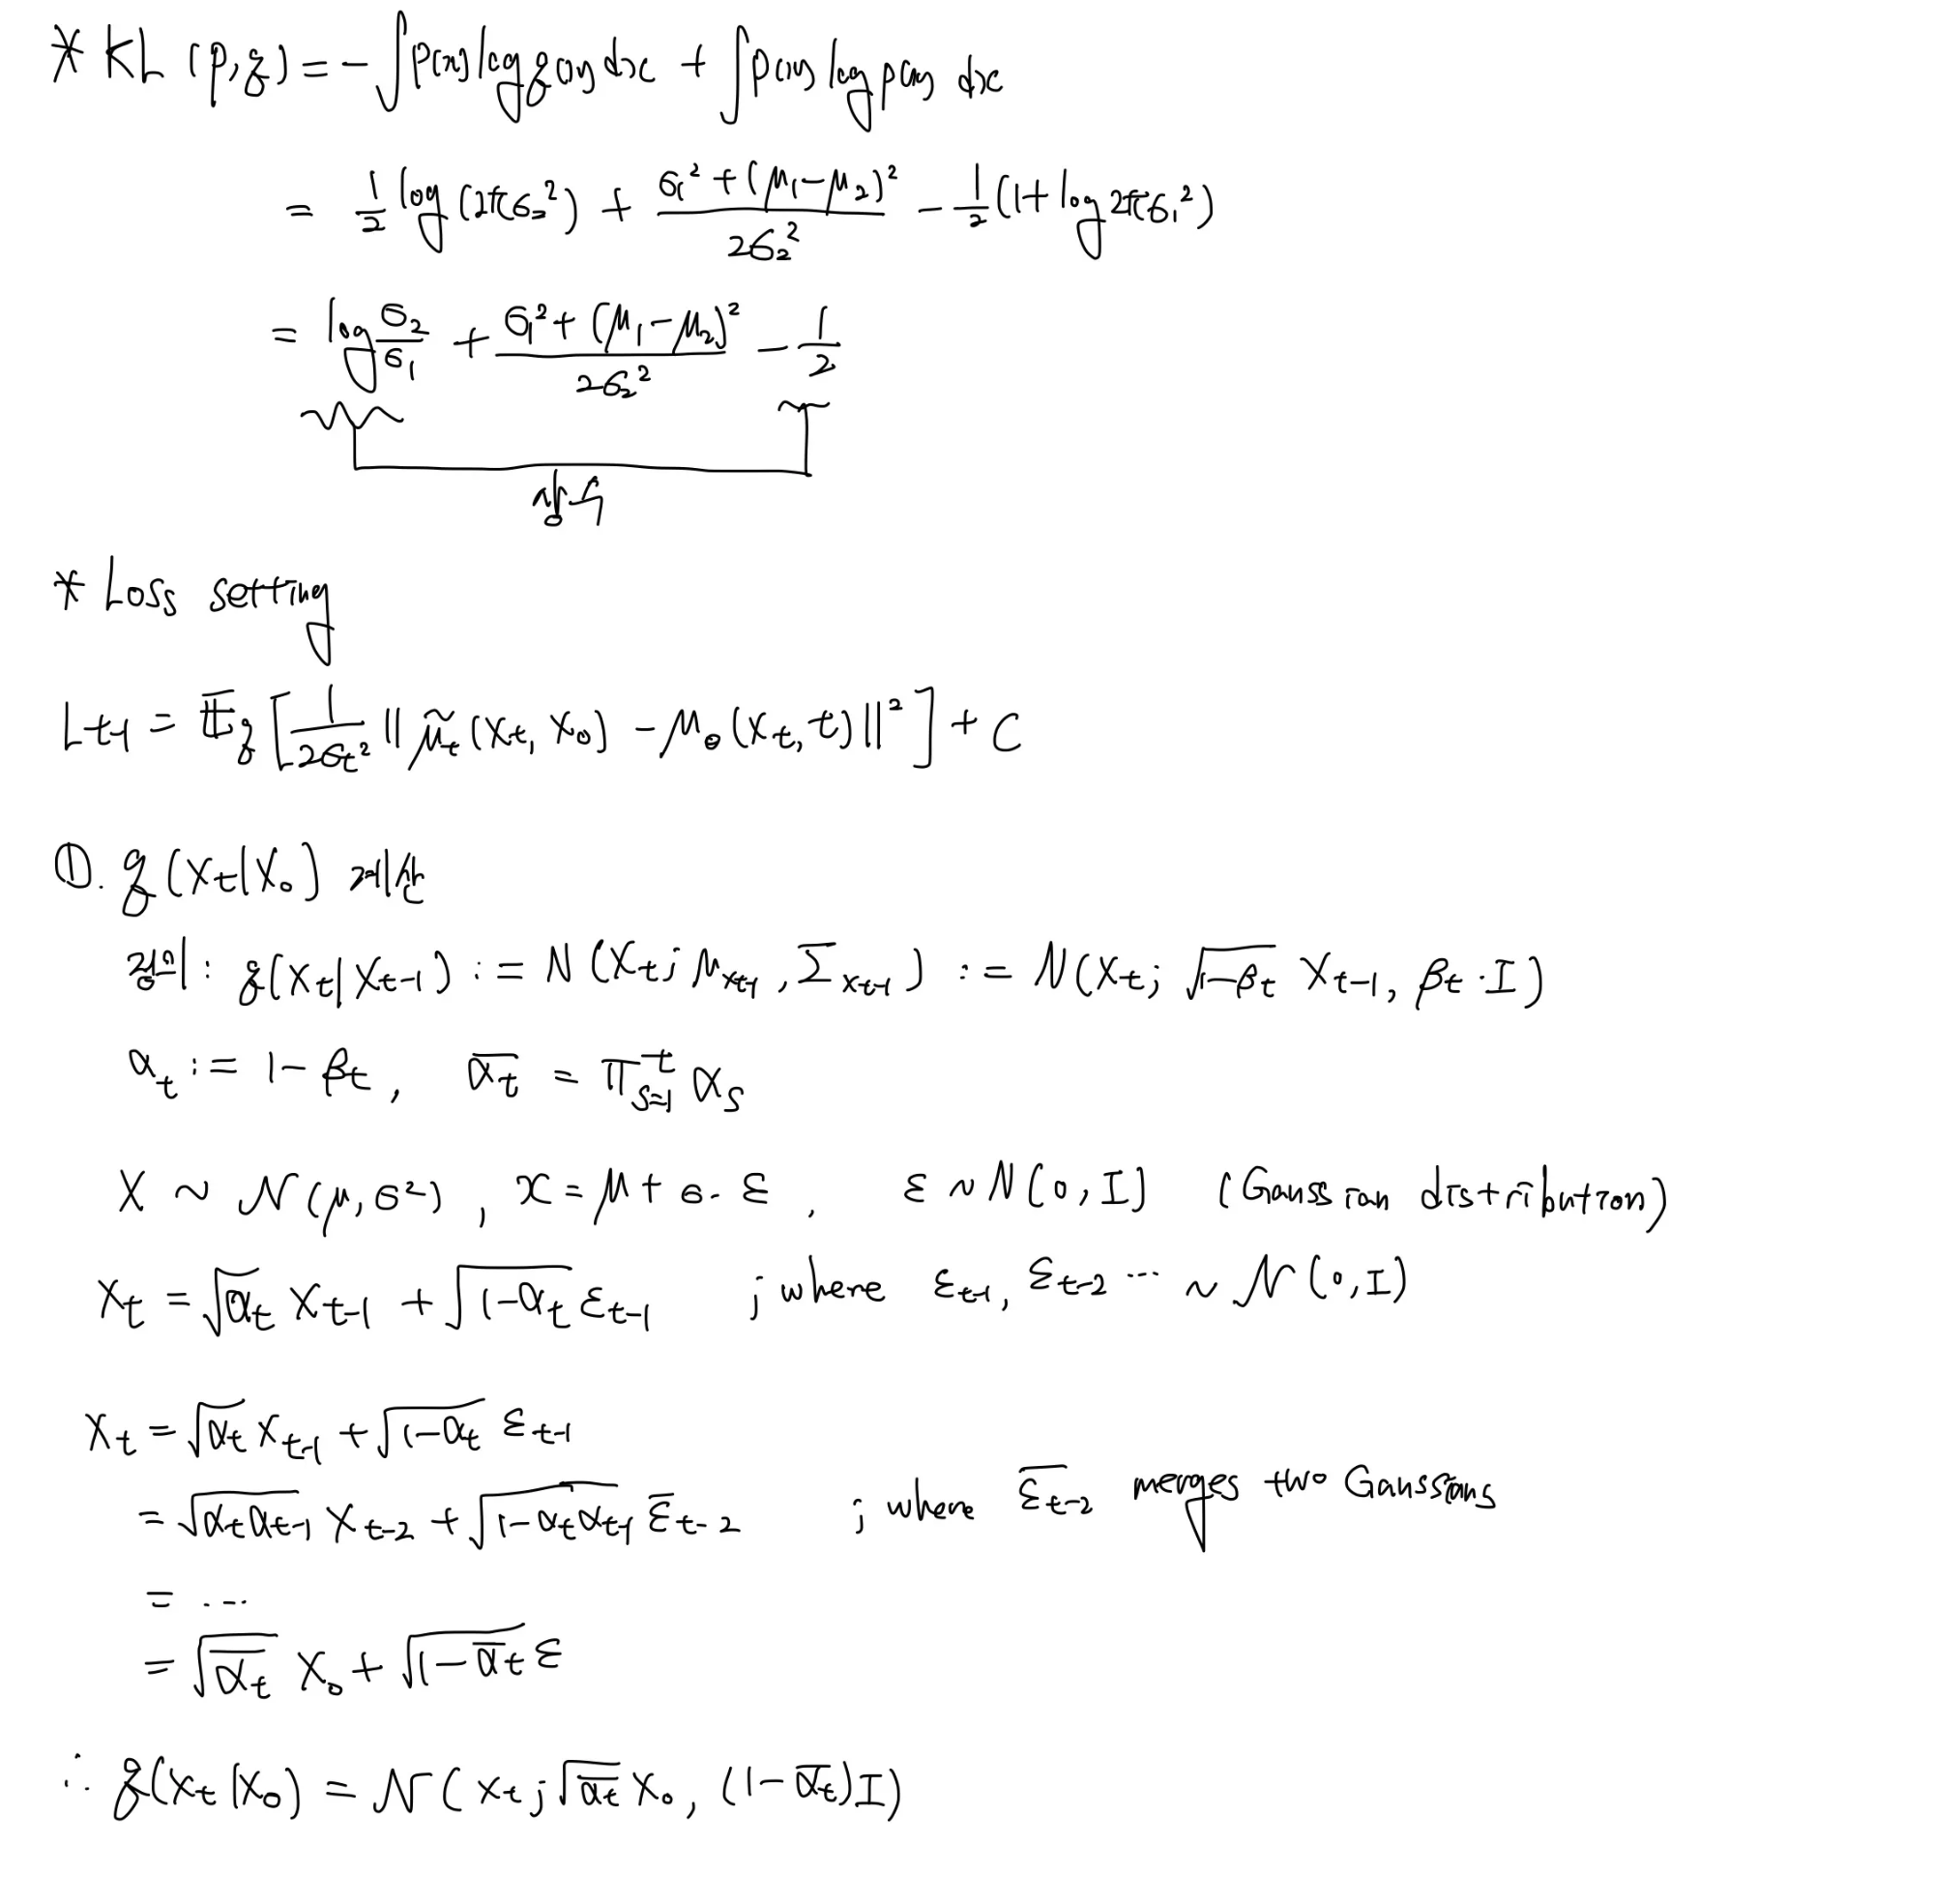 * KL (p,q) = - ∫p(x) log q(x) dx + ∫p(x) log p(x) dx
= 1/2 log (2πσ₂²) + (σ₁² + (μ₁-μ₂)²)/(2σ₂²) - 1/2 (1 + log 2πσ₁²)
= log σ₂/σ₁ + (σ₁² + (μ₁-μ₂)²)/(2σ₂²) - 1/2
상수
* Loss setting
L_{t-1} = 𝔼_q [ 1/(2σ_t²) || μ̃_t (x_t, x₀) - μ_θ (x_t, t) ||² ] + C
①. q(x_t|x₀) 계산
정의: q(x_t|x_{t-1}) := N(x_t; μ_{x_{t-1}}, Σ_{x_{t-1}}) := N(x_t; √(1-β_t) x_{t-1}, β_t · I)
α_t := 1 - β_t, ᾱ_t = Π_{s=1}^t α_s
X ~ N(μ, σ²), x = μ + σ · ε, ε ~ N(0, I) (Gaussian distribution)
x_t = √α_t x_{t-1} + √(1-α_t) ε_{t-1} ; where ε_{t-1}, ε_{t-2} ... ~ N(0, I)
x_t = √α_t x_{t-1} + √(1-α_t) ε_{t-1}
= √(α_t α_{t-1}) x_{t-2} + √(1-α_t α_{t-1}) ε̄_{t-2} ; where ε̄_{t-2} merges two Gaussians
= ...
= √ᾱ_t x₀ + √(1-ᾱ_t) ε
∴ q(x_t|x₀) = N(x_t; √ᾱ_t x₀, (1-ᾱ_t)I)